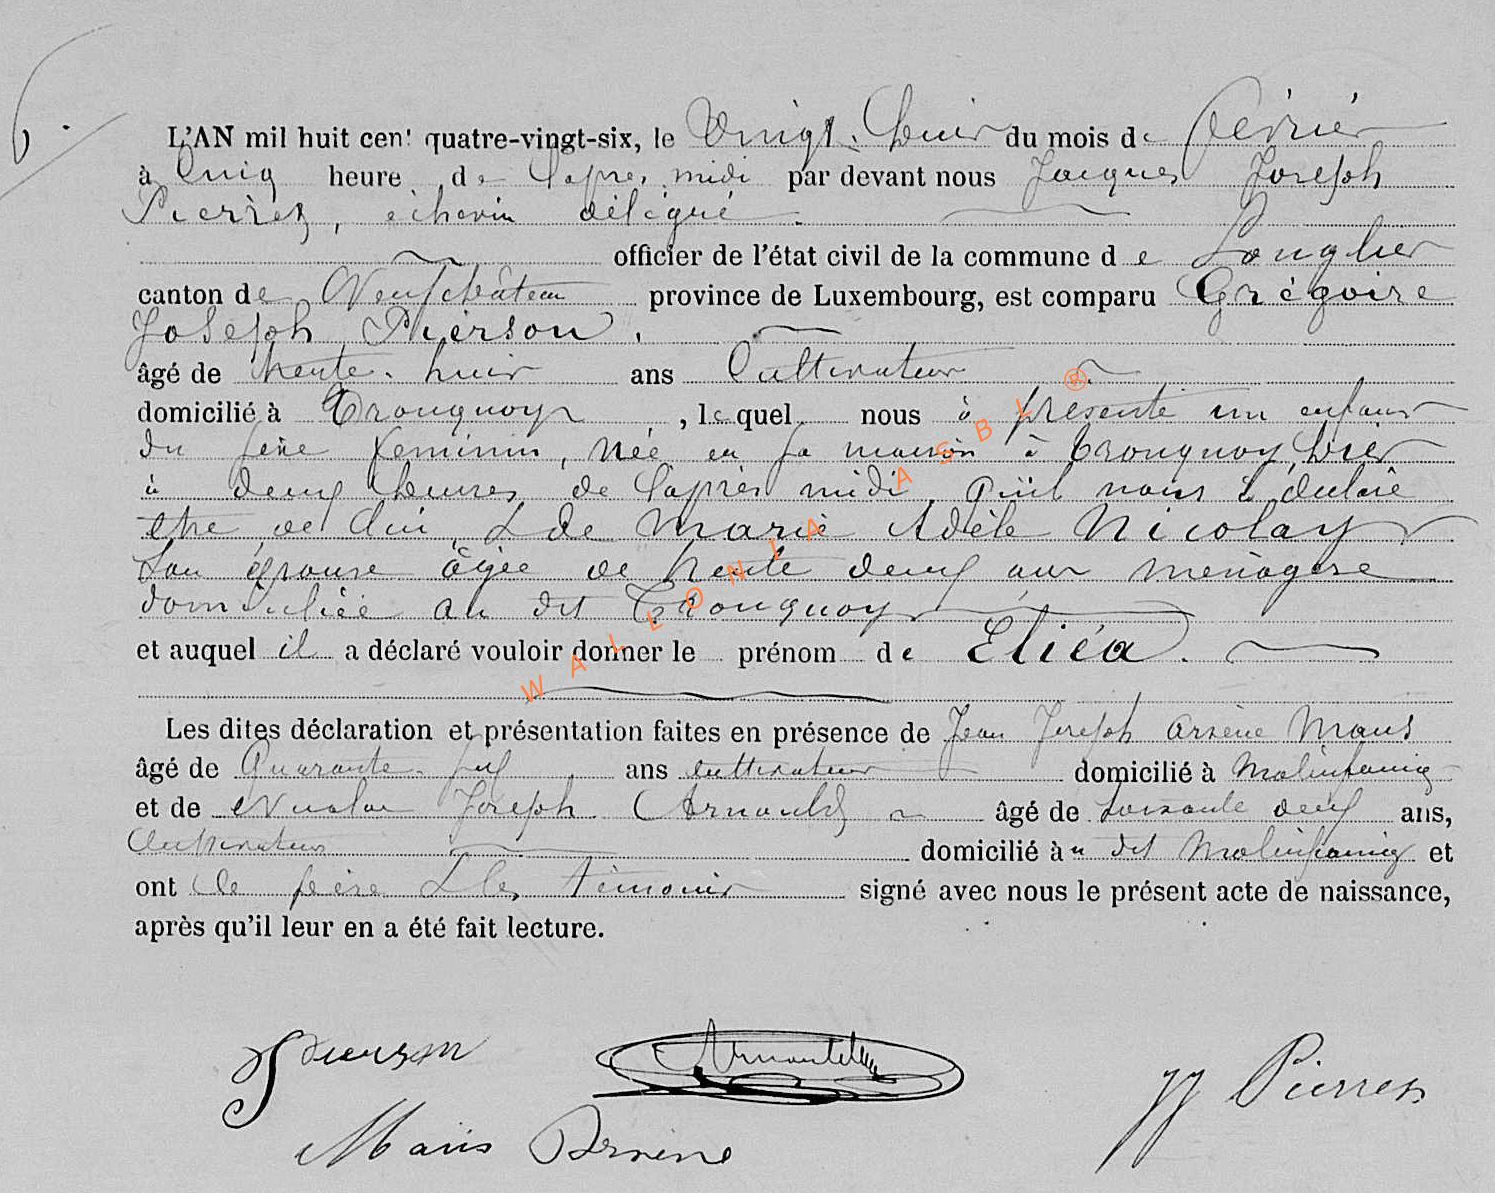 6.
L'AN mil huit cent quatre-vingt-six, le Vingt-huit du mois de Février
à Cinq heure de l'après midi par devant nous Jacques Joseph
Pierrez, échevin délégué
officier de l'état civil de la commune de Longlier
canton de Neufchâteau province de Luxembourg, est comparu Grégoire
Joseph Pierson,
âgé de trente-huit ans Cultivateur
domicilié à Tronquoy, lequel nous à présenté un enfant
du sexe feminin, née en sa maison à Tronquoy, hier
à deux heures de l'après midi, qu'il nous à declaré
être de lui, & de Marie Adèle Nicolay
son épouse âgée de trente deux ans ménagère
domiciliée au dit Tronquoy
et auquel il a déclaré vouloir donner le prénom de Eliéa.
Les dites déclaration et présentation faites en présence de Jean Joseph Arsène Maus
âgé de Quarante-six ans cultivateur domicilié à Molinfaing
et de Nicolas Joseph Arnould âgé de soixante deux ans,
Cultivateur domicilié au dit Molinfaing et
ont le père & les témoins signé avec nous le présent acte de naissance,
après qu'il leur en a été fait lecture.
WALLONIA ASBL ®
Pierson
JJ Pierrez
Maüs Arsène